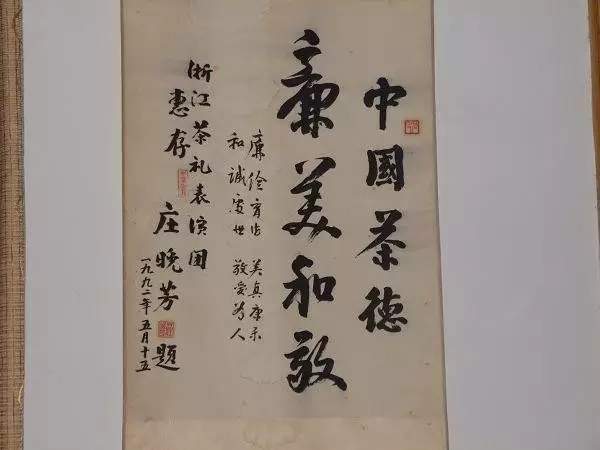 中國茶德
廉美和敬
廉儉育德 美真康樂
和誠處世 敬愛為人
浙江茶礼表演团
惠存
庄晚芳 题
一九九二年五月十五